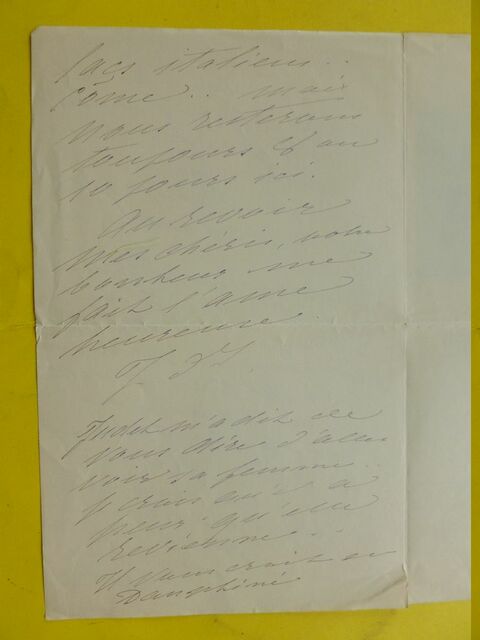 lacs italiens..
Côme.. mais
nous resterons
toujours 8 ou
10 jours ici.
Au revoir
mes chéris, votre
bonheur me
fait l'âme
heureuse.
Judet m'a dit de
vous dire d'aller
voir sa femme..
je crois qu'il a
peur qu'elle
revienne..
Il vous croit en
Dauphiné